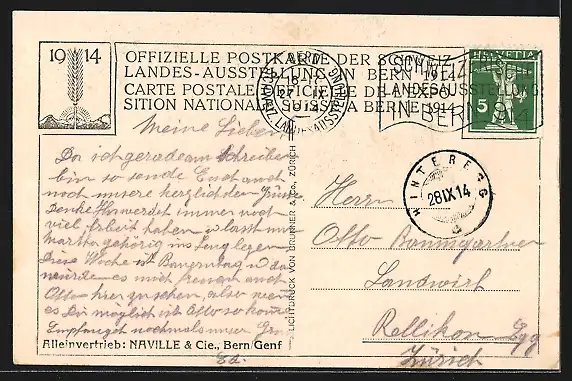 1914
OFFIZIELLE POSTKARTE DER SCHWEIZ.
LANDES-AUSSTELLUNG IN BERN 1914
CARTE POSTALE OFFICIELLE DE L'EXPO-
SITION NATIONALE SUISSE A BERNE 1914
HELVETIA
5
SCHWEIZ.
LANDESAUSSTELLUNG
IN BERN 1914
BERN
27.IX.
SCHWEIZ. LANDESAUSSTELLUNG
HINTEREGG
28IX14
Meine Lieben
Da ich gerade am Schreiben
bin so sende Euch auch
noch unsere herzlichsten Grüsse
Denke Ihr werdet immer noch
viel Arbeit haben u lasst nur
Martha gehörig ins Zeug legen
Diese Woche ist Bauerntag u da
würde es mich freuen auch
Otto hier zu sehen, also wenn
es Dir möglich ist Otto so komm
Empfanget nochmals unsere
Ed.
Herrn
Otto Baumgartner
Landwirt
Rellikon Egg
Zürich
LICHTDRUCK VON BRUNNER & Co., ZÜRICH
Alleinvertrieb: NAVILLE & Cie., Bern/Genf